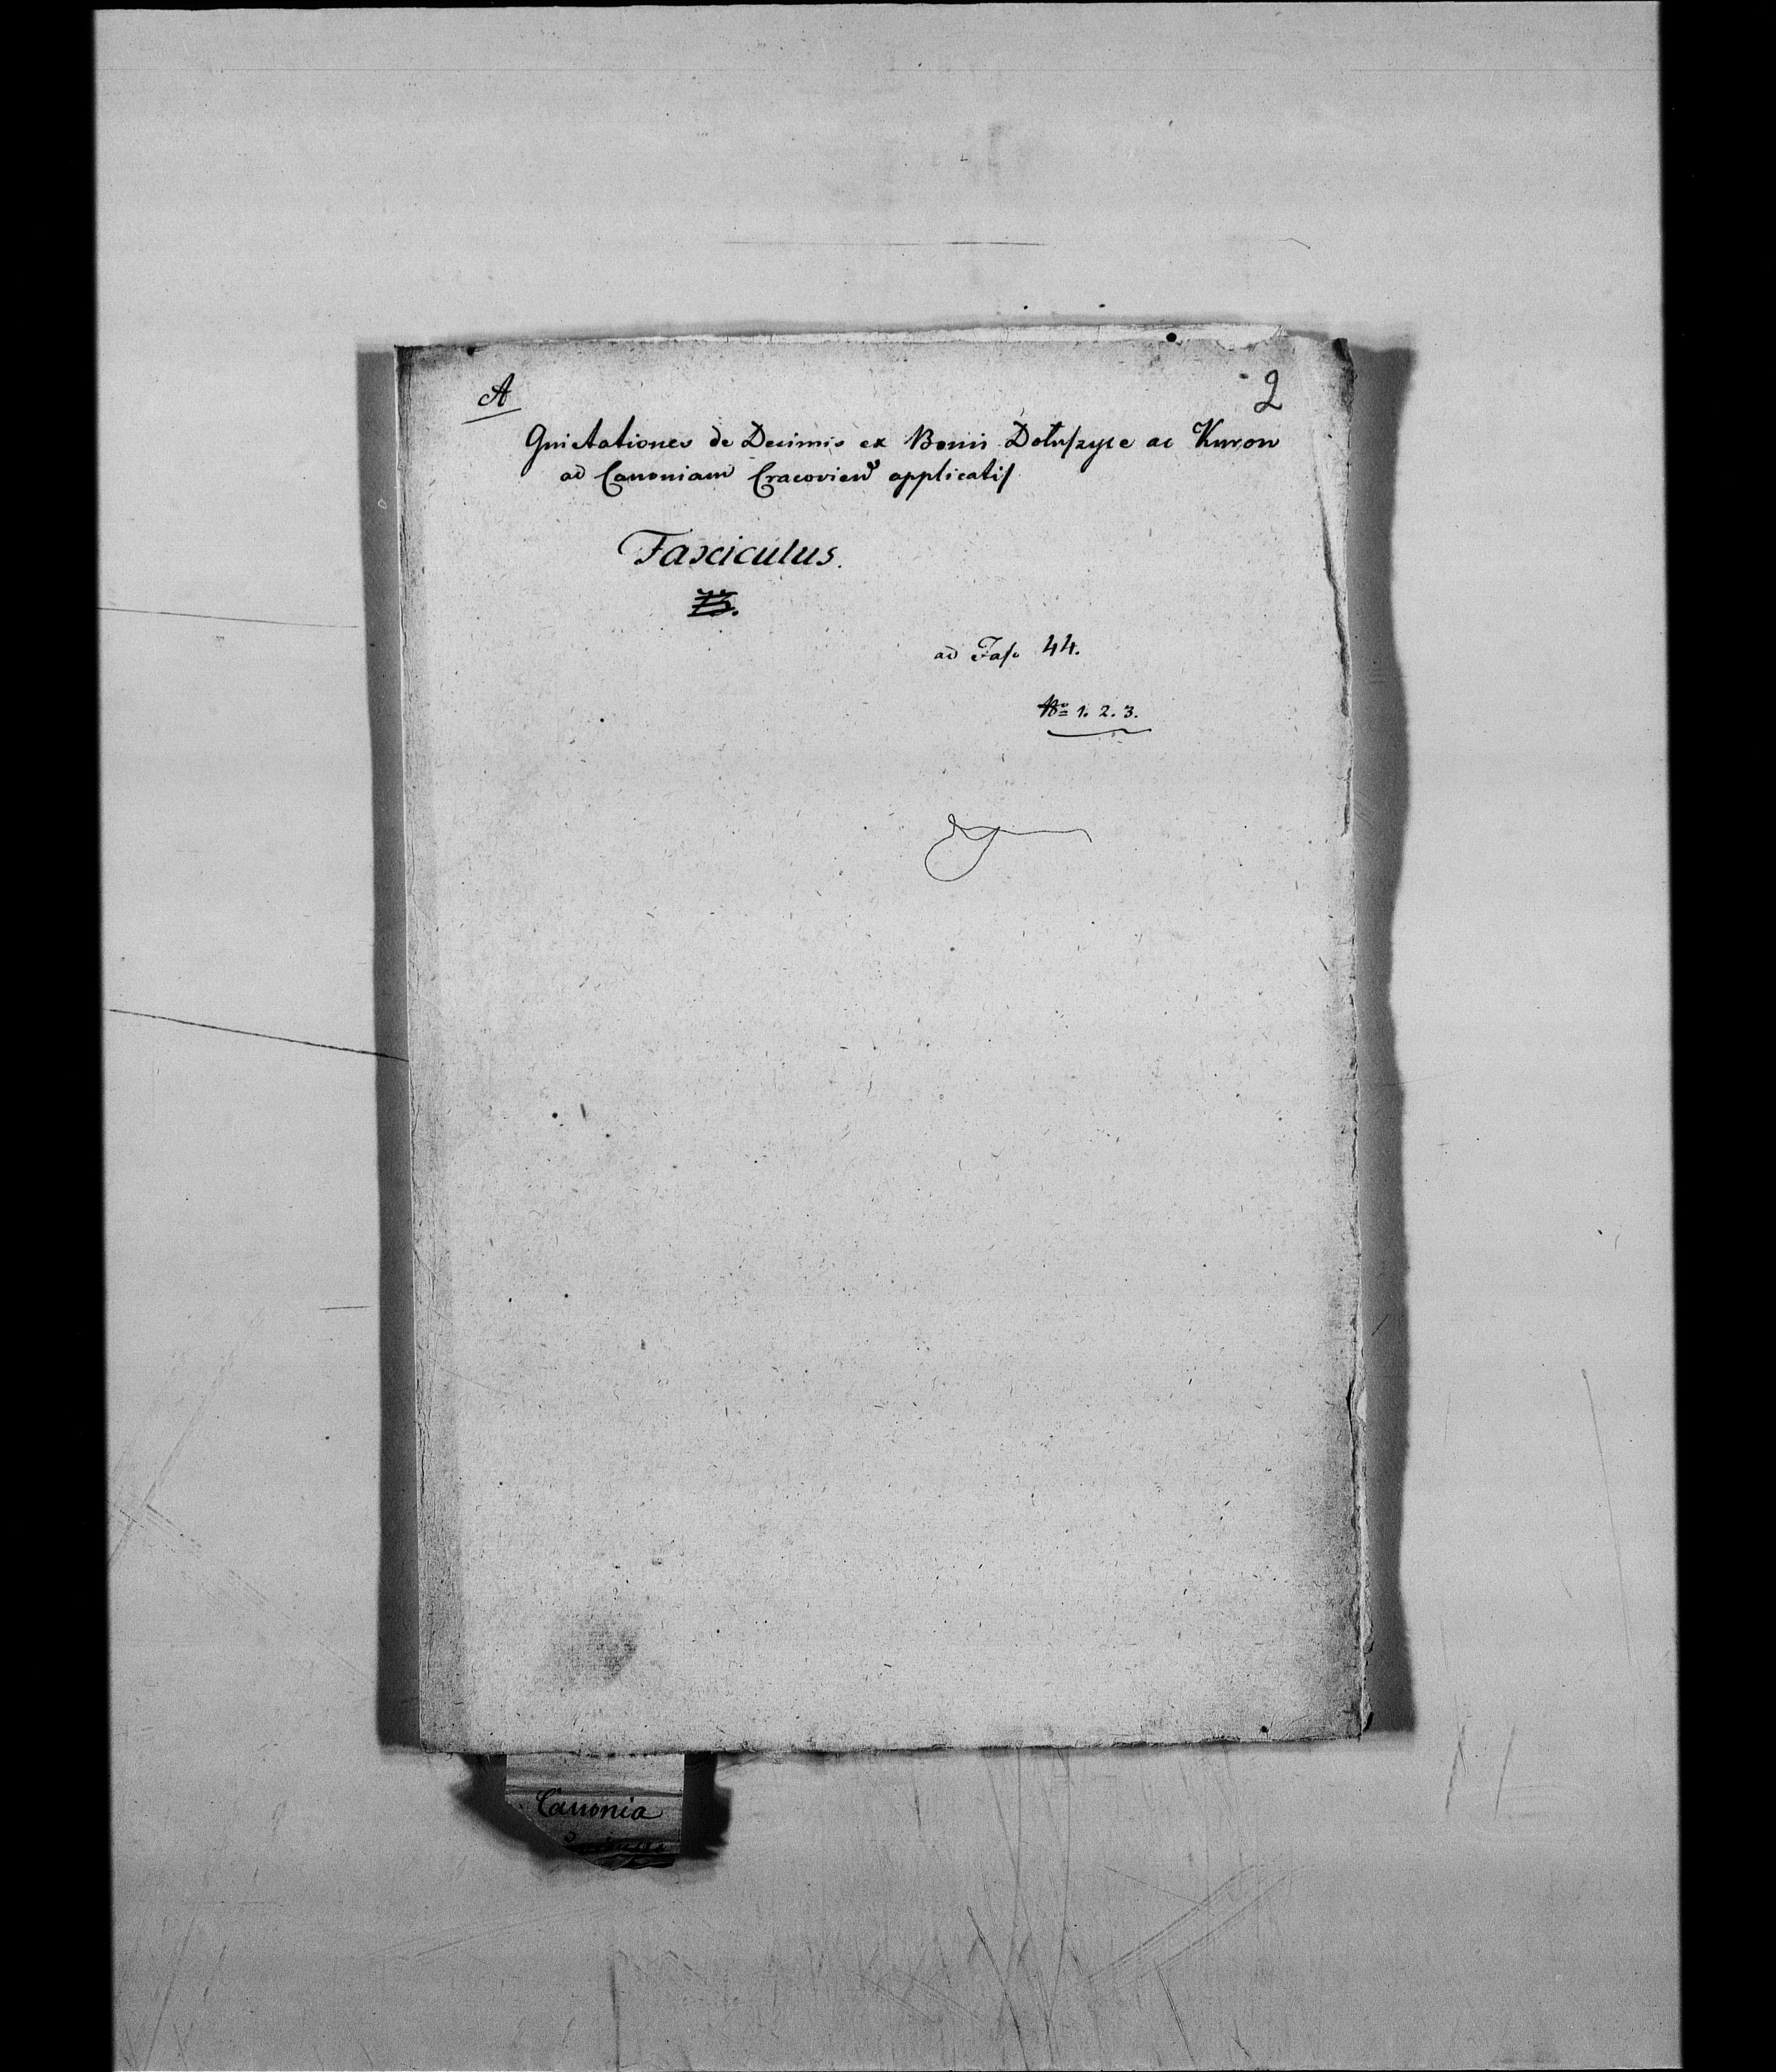 A 2
Quietationes de Decimis ex Bonis Dołuszyce ac Kurow
ad Canoniam Cracovien applicatis
Fasciculus.
ad Fasc 44.
No 1. 2. 3.
Canonia